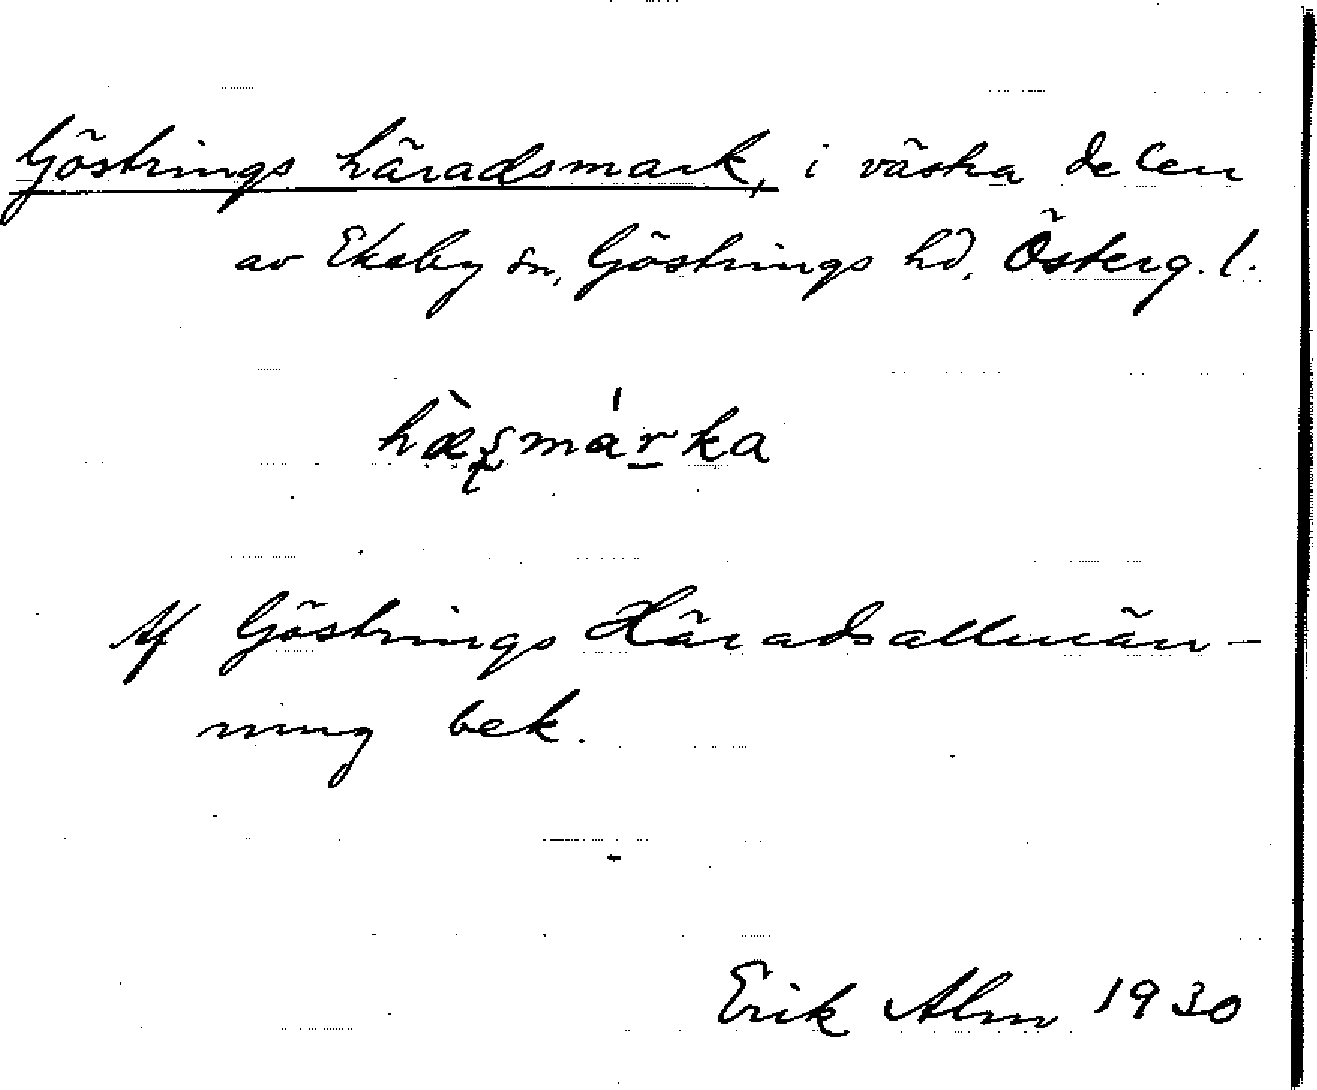 Göstrings häradsmark, i västra delen
av Ekeby sn, Göstrings hd, Österg. l.
Af Göstrings Häradsallmän-
ning bek.
Erik Alm 1930